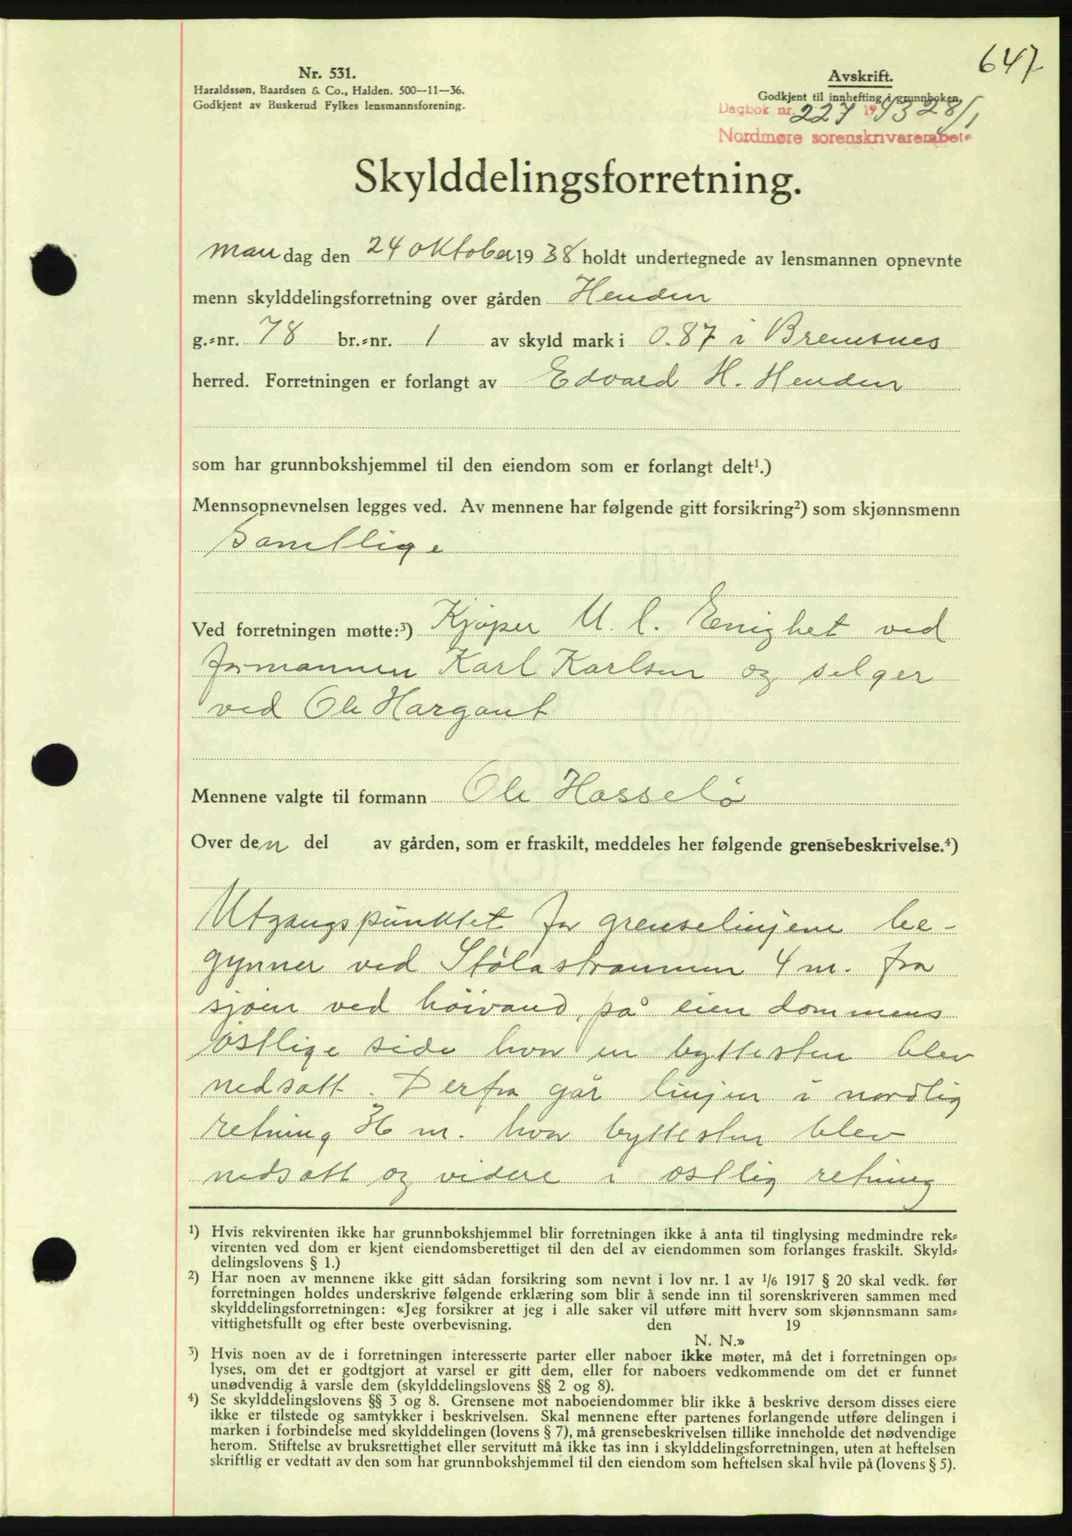 647
Nr. 531.
Haraldssøn, Baardsen & Co., Halden. 500—11—36.
Godkjent av Buskerud Fylkes lensmannsforening.
Avskrift.
Godkjent til innhefting i grunnboken
Dagbok nr. 227 1943 28/1
Nordmøre sorenskrivarembete
Skylddelingsforretning.
Mandag den 24 oktober 1938 holdt undertegnede av lensmannen opnevnte
menn skylddelingsforretning over gården Henden
g.=nr. 78 br.=nr. 1 av skyld mark i 0.87 i Bremsnes
herred. Forretningen er forlangt av Edvard H. Henden
som har grunnbokshjemmel til den eiendom som er forlangt delt¹.)
Mennsopnevnelsen legges ved. Av mennene har følgende gitt forsikring²) som skjønnsmenn
Samtlige
Ved forretningen møtte:³) Kjøper U. l. Enighet ved
formannen Karl Karlsen og selger
ved Ole Hargaut
Mennene valgte til formann Ole Hasselø
Over den del av gården, som er fraskilt, meddeles her følgende grensebeskrivelse.⁴)
Utgangspunktet for grenselinjene be-
gynner ved Stølastraumen 4 m. fra
sjøen ved høivand, på eiendommens
østlige side hvor en byttesten blev
nedsatt. Derfra går linjen i nordlig
retning 36 m. hvor byttesten blev
nedsatt og videre i østlig retning
¹) Hvis rekvirenten ikke har grunnbokshjemmel blir forretningen ikke å anta til tinglysing medmindre rek=
virenten ved dom er kjent eiendomsberettiget til den del av eiendommen som forlanges fraskilt. Skyld=
delingslovens § 1.)
²) Har noen av mennene ikke gitt sådan forsikring som nevnt i lov nr. 1 av 1/6 1917 § 20 skal vedk. før
forretningen holdes underskrive følgende erklæring som blir å sende inn til sorenskriveren sammen med
skylddelingsforretningen: «Jeg forsikrer at jeg i alle saker vil utføre mitt hverv som skjønnsmann sam=
vittighetsfullt og efter beste overbevisning. den 19
N. N.»
³) Hvis noen av de i forretningen interesserte parter eller naboer ikke møter, må det i forretningen op=
lyses, om det er godtgjort at varsel er gitt dem, eller for naboers vedkommende om det er funnet
unødvendig å varsle dem (skylddelingslovens §§ 2 og 8).
⁴) Se skylddelingslovens §§ 3 og 8. Grensene mot naboeiendommer blir ikke å beskrive dersom disses eiere
ikke er tilstede og samtykker i beskrivelsen. Skal mennene efter partenes forlangende utføre delingen i
marken i forbindelse med skylddelingen (lovens § 7), må grensebeskrivelsen tillike inneholde det nødvendige
herom. Stiftelse av bruksrettighet eller servitutt må ikke tas inn i skylddelingsforretningen, uten at heftelsen
skriftlig er vedtatt av den som har grunnbokshjemmel til den eiendom som heftelsen skal hvile på (lovens § 5).